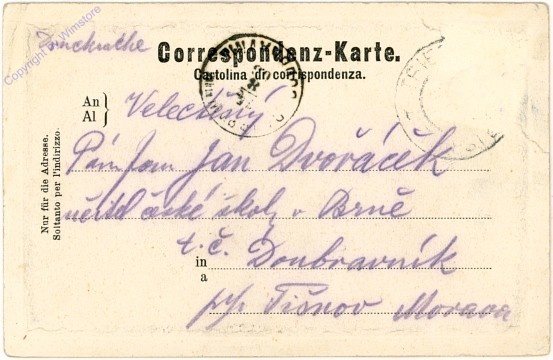 Drucksache
Correspondenz-Karte.
Cartolina di corrispondenza.
An
Al
Velectěný
Pán pan Jan Dvořáček
učitel české školy v Brně
t. č. Doubravník
in
a
p/p. Tišnov Morava
Nur für die Adresse.
Soltanto per l'indirizzo.